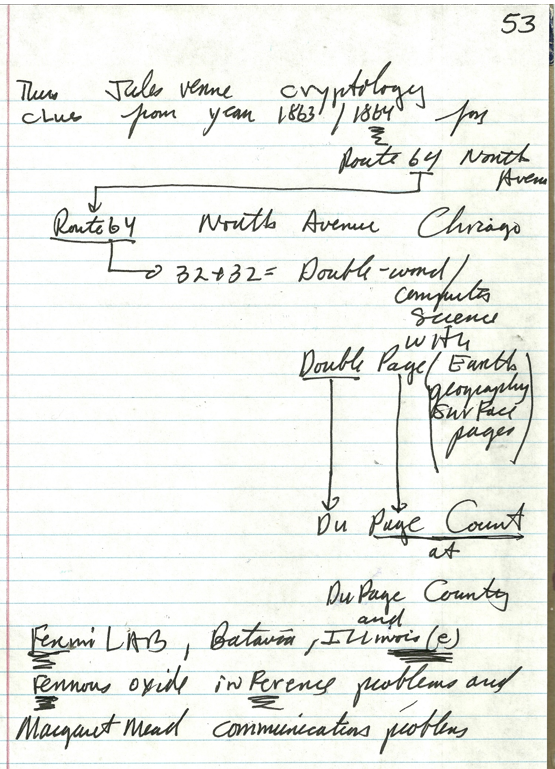 53
Thus Jules Verne cryptology
clues from year 1863 / 1864 for
Route 64 North
Avenu
Route 64 North Avenue Chicago
32+32= Double-word /
computer
science
with
Double Page (Earth
geography
surface
pages)
Du Page Count
at
DuPage County
and
Fermi LAB, Batavia, Illinois (e)
Ferrous oxide inFerence problems and
Margaret Mead communications problems